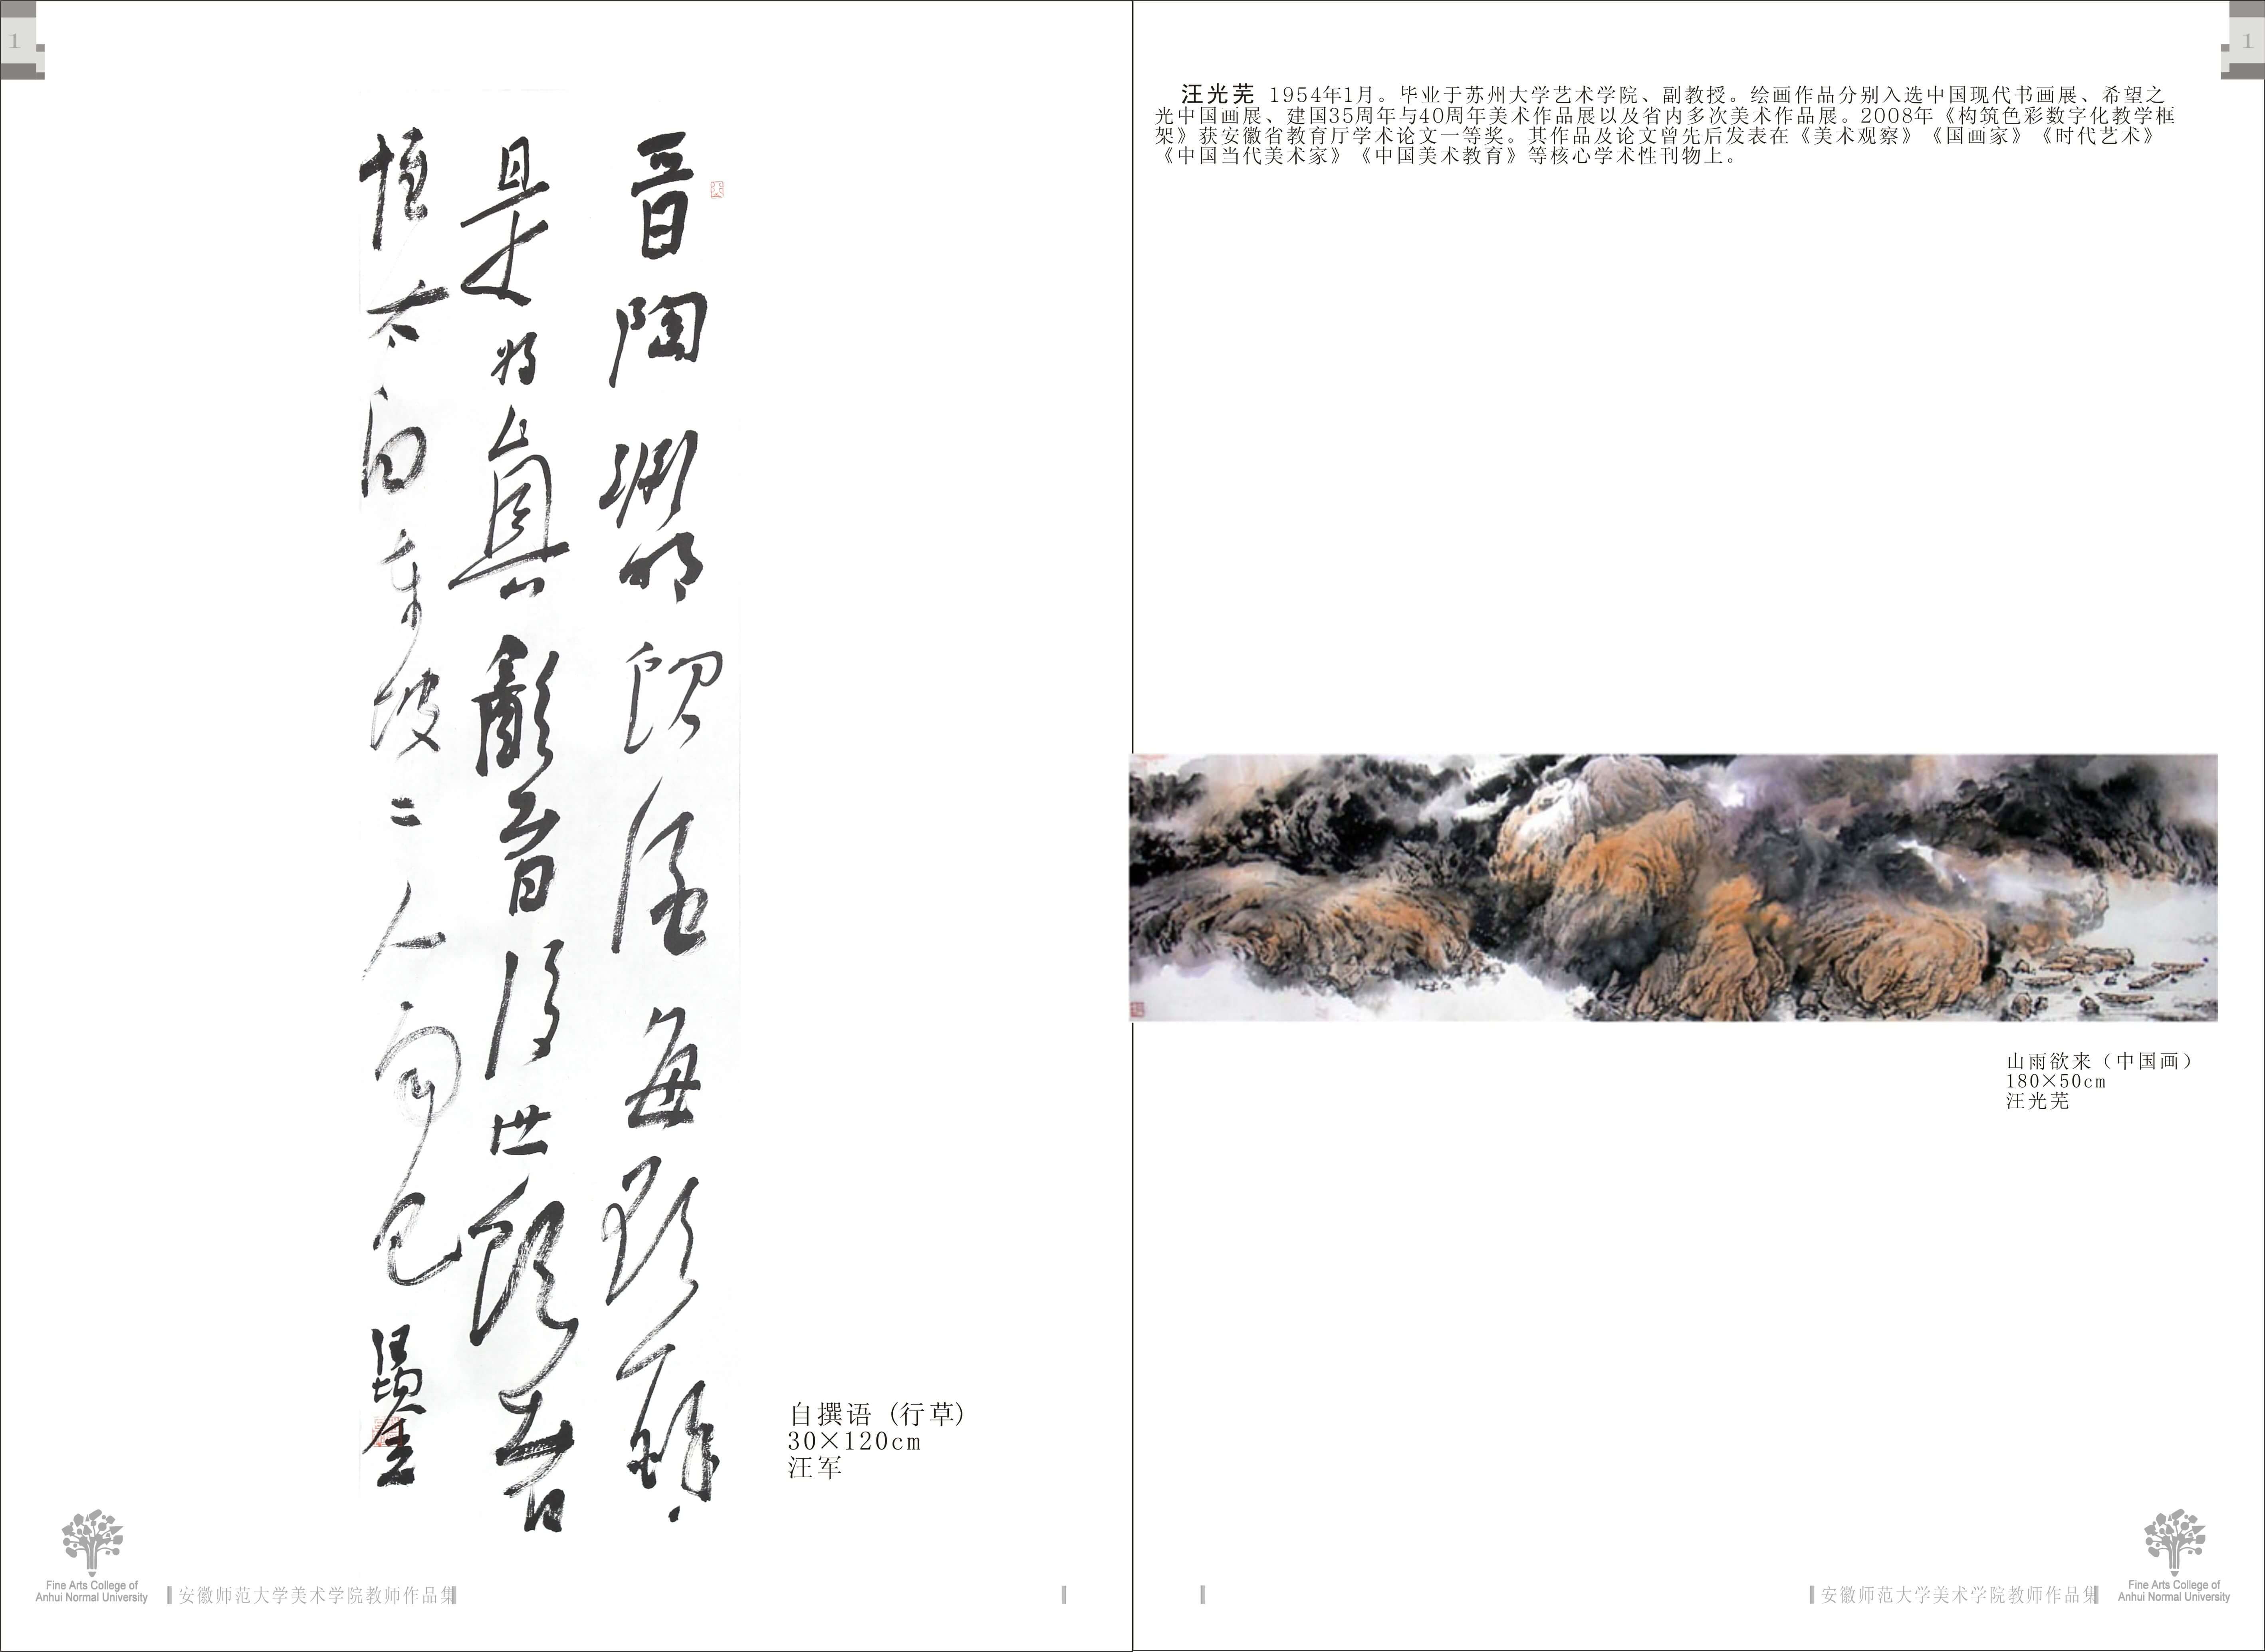 1
晉陶渊明
真
晉後世
惟太白東坡二人而已
自撰语 (行草)
30×120cm
汪军
Fine Arts College of
Anhui Normal University
安徽师范大学美术学院教师作品集
1
汪光芜 1954年1月。毕业于苏州大学艺术学院、副教授。绘画作品分别入选中国现代书画展、希望之
光中国画展、建国35周年与40周年美术作品展以及省内多次美术作品展。2008年《构筑色彩数字化教学框
架》获安徽省教育厅学术论文一等奖。其作品及论文曾先后发表在《美术观察》《国画家》《时代艺术》
《中国当代美术家》《中国美术教育》等核心学术性刊物上。
山雨欲来（中国画）
180×50cm
汪光芜
安徽师范大学美术学院教师作品集
Fine Arts College of
Anhui Normal University